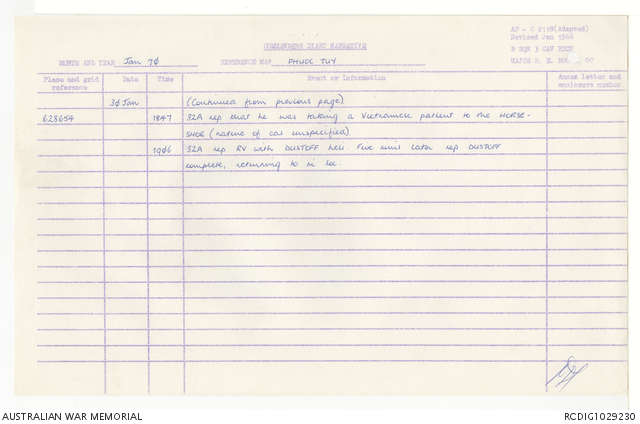 AF - C 2118(Adapted)
Revised Jan 1966
COMMANDERS DIARY NARRATIVE
B SQN 3 CAV REGT
MONTH AND YEAR Jan 70 REFERENCE MAP PHUOC TUY MAJOR R. E.
Place and grid reference Date Time Event or Information Annex letter and enclosure number
30 Jan (Continued from previous page)
628654 1847 32A rep that he was taking a Vietnamese patient to the HORSE-
SHOE (nature of cas unspecified)
1906 32A rep RV with DUSTOFF heli five mins later rep DUSTOFF
complete, returning to ni loc.
AUSTRALIAN WAR MEMORIAL
RCDIG1029230